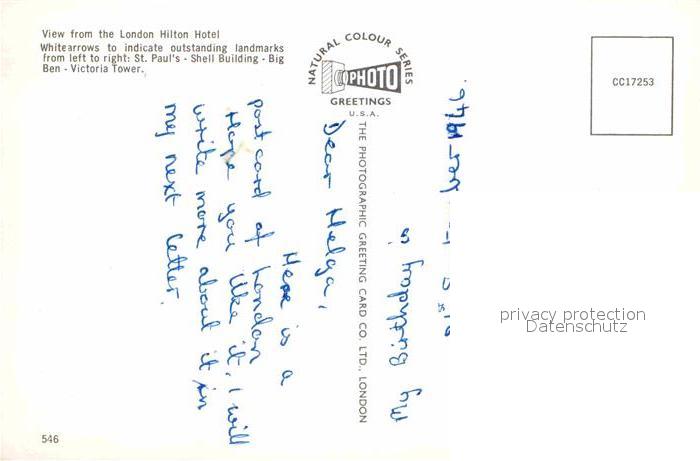 View from the London Hilton Hotel
White arrows to indicate outstanding landmarks
from left to right: St. Paul's - Shell Building - Big
Ben - Victoria Tower.
NATURAL COLOUR SERIES
PHOTO
GREETINGS
U.S.A.
THE PHOTOGRAPHIC GREETING CARD CO. LTD., LONDON
CC17253
Dear Helga,
Here is a
postcard of London
Hope you like it, I will
write more about it in
my next letter.
My Birthday is
privacy protection
Datenschutz
546